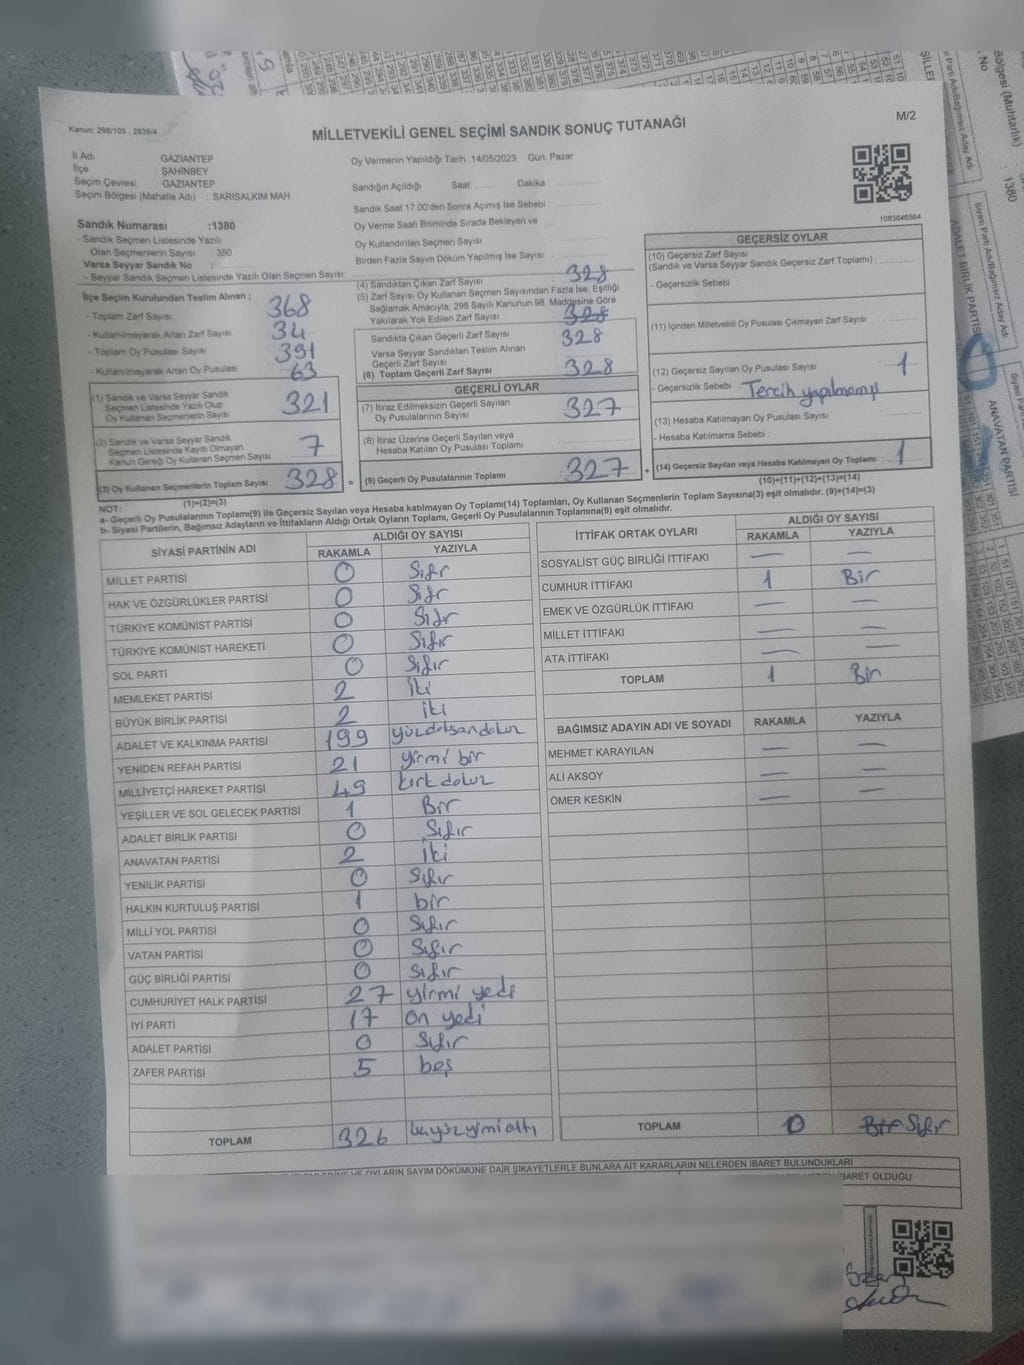 Kanun: 298/105 , 2839/4
MİLLETVEKİLİ GENEL SEÇİMİ SANDIK SONUÇ TUTANAĞI
M/2
İl Adı : GAZİANTEP
İlçe : ŞAHİNBEY
Seçim Çevresi : GAZİANTEP
Seçim Bölgesi (Mahalle Adı) : SARISALKIM MAH
Oy Vermenin Yapıldığı Tarih : 14/05/2023 Gün: Pazar
Sandığın Açıldığı Saat: Dakika
Sandık Saat 17:00'den Sonra Açımış İse Sebebi :
Oy Verme Saati Bitiminde Sırada Bekleyen ve
Oy Kullandırılan Seçmen Sayısı
Birden Fazla Sayım Döküm Yapılmış İse Sayısı :
1083646564
Sandık Numarası :1380
- Sandık Seçmen Listesinde Yazılı
Olan Seçmenlerin Sayısı 350
Varsa Seyyar Sandık No :
- Seyyar Sandık Seçmen Listesinde Yazılı Olan Seçmen Sayısı:
İlçe Seçim Kurulundan Teslim Alınan :
- Toplam Zarf Sayısı 368
- Kullanılmayarak Artan Zarf Sayısı 34
- Toplam Oy Pusulası Sayısı 391
- Kullanılmayarak Artan Oy Pusulası 63
(1) Sandık ve Varsa Seyyar Sandık
Seçmen Listesinde Yazılı Olup
Oy Kullanan Seçmenlerin Sayısı 321
(2) Sandık ve Varsa Seyyar Sandık
Seçmen Listesinde Kayıtlı Olmayan
Kanun Gereği Oy Kullanan Seçmen Sayısı 7
(3) Oy Kullanan Seçmenlerin Toplam Sayısı 328
(1)+(2)=(3)
(4) Sandıktan Çıkan Zarf Sayısı 328
(5) Zarf Sayısı Oy Kullanan Seçmen Sayısından Fazla İse, Eşitliği
Sağlamak Amacıyla; 298 Sayılı Kanunun 98. Maddesine Göre
Yakılarak Yok Edilen Zarf Sayısı 328
Sandıkta Çıkan Geçerli Zarf Sayısı 328
Varsa Seyyar Sandıktan Teslim Alınan
Geçerli Zarf Sayısı
(6) Toplam Geçerli Zarf Sayısı 328
GEÇERLİ OYLAR
(7) İtiraz Edilmeksizin Geçerli Sayılan
Oy Pusulalarının Sayısı 327
(8) İtiraz Üzerine Geçerli Sayılan veya
Hesaba Katılan Oy Pusulası Toplamı
= (9) Geçerli Oy Pusulalarının Toplamı 327 +
GEÇERSİZ OYLAR
(10) Geçersiz Zarf Sayısı
(Sandık ve Varsa Seyyar Sandık Geçersiz Zarf Toplamı) :
- Geçersizlik Sebebi :
(11) İçinden Milletvekili Oy Pusulası Çıkmayan Zarf Sayısı
(12) Geçersiz Sayılan Oy Pusulası Sayısı 1
- Geçersizlik Sebebi : Tercih yapılmamış
(13) Hesaba Katılmayan Oy Pusulası Sayısı
- Hesaba Katılmama Sebebi :
(14) Geçersiz Sayılan veya Hesaba Katılmayan Oy Toplamı : 1
(10)+(11)+(12)+(13)=(14)
NOT:
a- Geçerli Oy Pusulalarının Toplamı(9) ile Geçersiz Sayılan veya Hesaba katılmayan Oy Toplamı(14) Toplamları, Oy Kullanan Seçmenlerin Toplam Sayısına(3) eşit olmalıdır. (9)+(14)=(3)
b- Siyasi Partilerin, Bağımsız Adayların ve İttifakların Aldığı Ortak Oyların Toplamı, Geçerli Oy Pusulalarının Toplamına(9) eşit olmalıdır.
SİYASİ PARTİNİN ADI ALDIĞI OY SAYISI
RAKAMLA YAZIYLA
MİLLET PARTİSİ 0 Sıfır
HAK VE ÖZGÜRLÜKLER PARTİSİ 0 Sıfır
TÜRKİYE KOMÜNİST PARTİSİ 0 Sıfır
TÜRKİYE KOMÜNİST HAREKETİ 0 Sıfır
SOL PARTİ 0 Sıfır
MEMLEKET PARTİSİ 2 İki
BÜYÜK BİRLİK PARTİSİ 2 iki
ADALET VE KALKINMA PARTİSİ 199 yüzdoksandokuz
YENİDEN REFAH PARTİSİ 21 yirmi bir
MİLLİYETÇİ HAREKET PARTİSİ 49 kırkdokuz
YEŞİLLER VE SOL GELECEK PARTİSİ 1 Bir
ADALET BİRLİK PARTİSİ 0 Sıfır
ANAVATAN PARTİSİ 2 İki
YENİLİK PARTİSİ 0 Sıfır
HALKIN KURTULUŞ PARTİSİ 1 bir
MİLLİ YOL PARTİSİ 0 Sıfır
VATAN PARTİSİ 0 Sıfır
GÜÇ BİRLİĞİ PARTİSİ 0 Sıfır
CUMHURİYET HALK PARTİSİ 27 yirmi yedi
İYİ PARTİ 17 on yedi
ADALET PARTİSİ 0 Sıfır
ZAFER PARTİSİ 5 beş
TOPLAM 326 üçyüzyirmialtı
İTTİFAK ORTAK OYLARI ALDIĞI OY SAYISI
RAKAMLA YAZIYLA
SOSYALİST GÜÇ BİRLİĞİ İTTİFAKI — —
CUMHUR İTTİFAKI 1 Bir
EMEK VE ÖZGÜRLÜK İTTİFAKI — —
MİLLET İTTİFAKI — —
ATA İTTİFAKI — —
TOPLAM 1 Bir
BAĞIMSIZ ADAYIN ADI VE SOYADI RAKAMLA YAZIYLA
MEHMET KARAYILAN — —
ALİ AKSOY — —
ÖMER KESKİN — —
TOPLAM 0 Bir Sıfır
OYLARIN SAYIM DÖKÜMÜNE DAİR ŞİKAYETLERLE BUNLARA AİT KARARLARIN NELERDEN İBARET BULUNDUKLARI
İBARET OLDUĞU
Bölgesi (Muhtarlık) : 1380
ADALET BİRLİK PARTİSİ
Siyasi Parti Adı/Bağımsız Aday Adı
ANAVATAN PARTİSİ